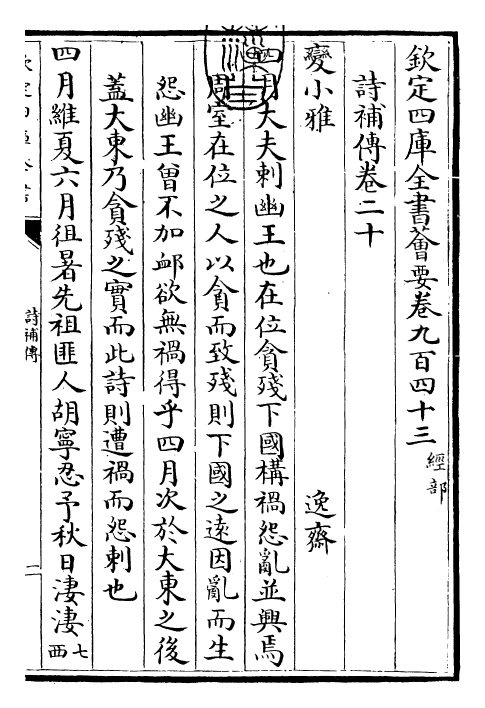 欽定四庫全書薈要卷九百四十三 經部
詩補傳卷二十
逸齋
變小雅
四月大夫刺幽王也在位貪殘下國構禍怨亂並興焉
周室在位之人以貪而致殘則下國之逺因亂而生
怨幽王曽不加䘏欲無禍得乎四月次於大東之後
蓋大東乃貪殘之實而此詩則遭禍而怨刺也
四月維夏六月徂暑先祖匪人胡寧忍予秋日淒淒七西
詩補傳
一